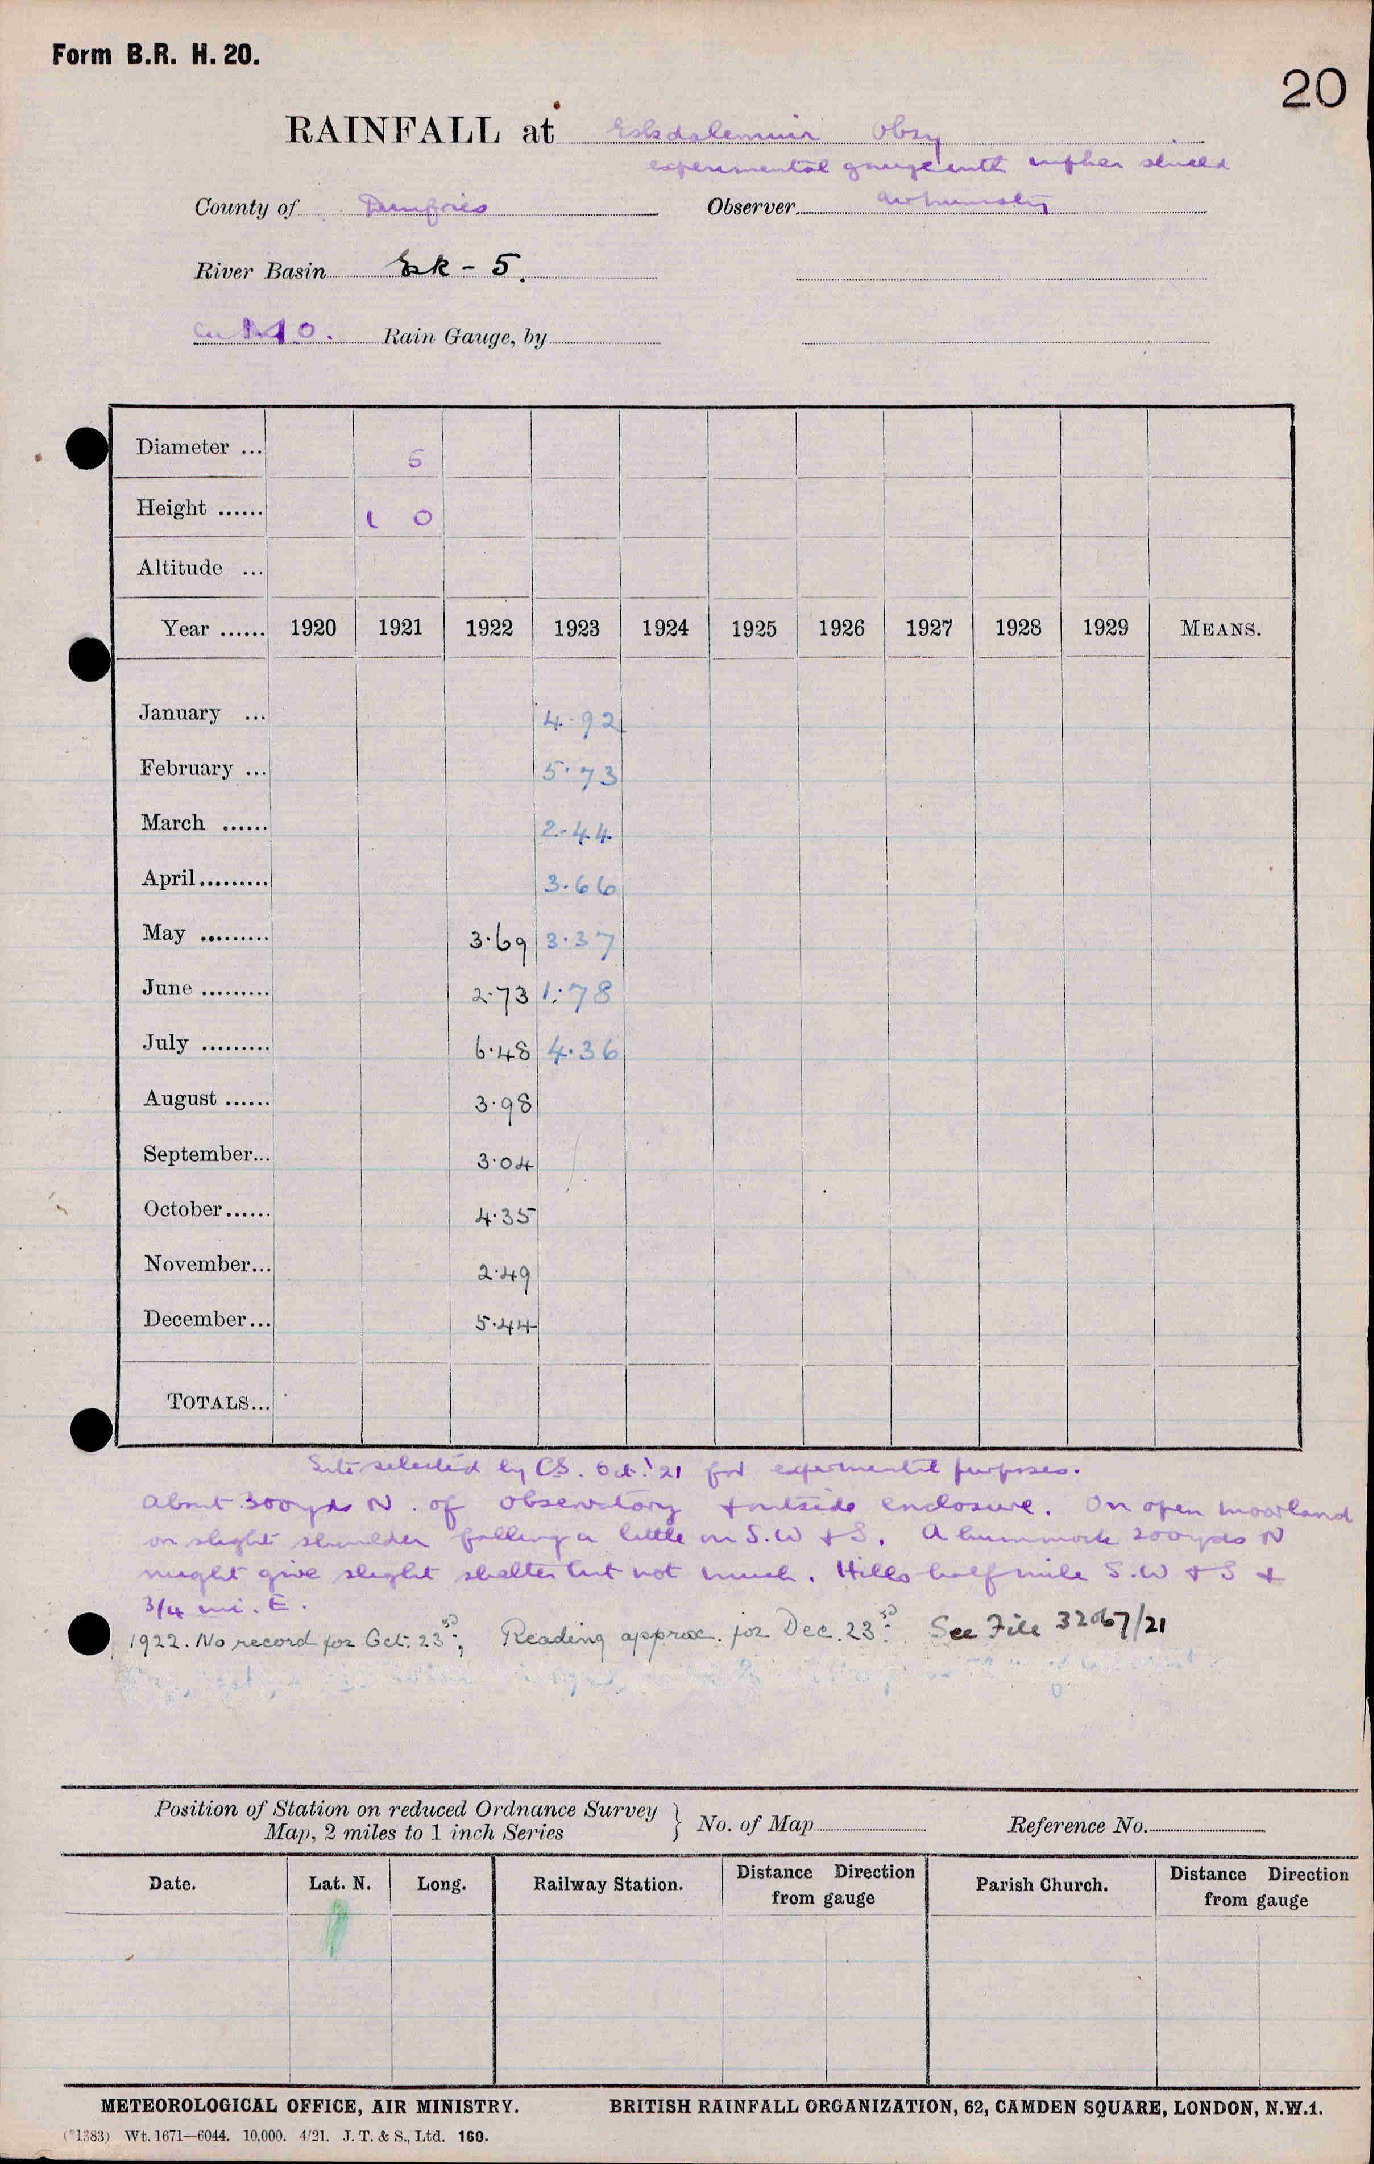 Form B.R. H. 20.
20
RAINFALL at Eskdalemuir Obsy
experimental gauge with nipher shield
County of Dumfries Observer
River Basin Esk - 5.
M.O. Rain Gauge, by
Diameter ... 5
Height ...... 1 0
Altitude ...
Year ...... 1920 1921 1922 1923 1924 1925 1926 1927 1928 1929 MEANS.
January ... 4.92
February ... 5.73
March ...... 2.44
April......... 3.66
May ......... 3.69 3.37
June ......... 2.73 1.78
July ......... 6.48 4.36
August ...... 3.98
September... 3.04
October...... 4.35
November... 2.49
December... 5.44
TOTALS...
Site selected by C.S. Oct. '21 for experimental purposes.
About 300 yds N. of Observatory & outside enclosure. On open moorland
on slight shoulder falling a little on S.W & S. A hummock 200 yds N
might give slight shelter but not much. Hills half mile S.W & S &
3/4 mi. E.
1922. No record for Oct. 23rd; Reading approx. for Dec. 23rd. See File 32067/21
Position of Station on reduced Ordnance Survey
Map, 2 miles to 1 inch Series } No. of Map Reference No.
Date. Lat. N. Long. Railway Station. Distance Direction from gauge Parish Church. Distance Direction from gauge
METEOROLOGICAL OFFICE, AIR MINISTRY. BRITISH RAINFALL ORGANIZATION, 62, CAMDEN SQUARE, LONDON, N.W.1.
(*1383) Wt. 1671—6044. 10,000. 4/21. J. T. & S., Ltd. 160.